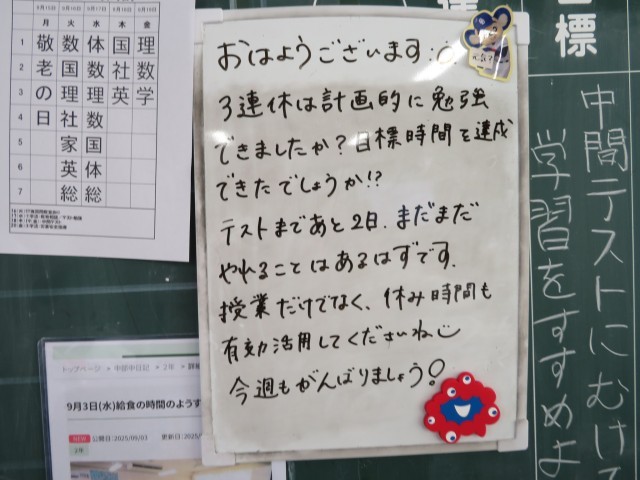 9月15日 9月16日 9月17日 9月18日 9月19日
月 火 水 木 金
1 敬 数 体 国 理
2 老 国 数 社 数
3 の 理 理 英 学
4 日 社 数
5 家 国
6 英 体
7 総 総
おはようございます
3連休は計画的に勉強
できましたか?目標時間を達成
できたでしょうか!?
テストまであと2日. まだまだ
やれることはあるはずです.
授業だけでなく、休み時間も
有効活用してくださいね
今週もがんばりましょう!
標
中間テストにむけて
学習をすすめよ
トップページ > 中部中日記 > 2年 > 詳細
9月3日(水)給食の時間のようす
NEW 公開日:2025/09/03 更新日:2025/
2年